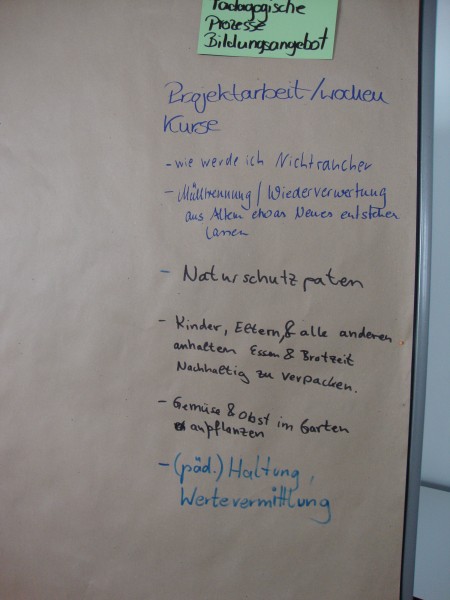 Pädagogische
Prozesse
Bildungsangebot
Projektarbeit/wochen
Kurse
- wie werde ich Nichtraucher
- Mülltrennung / Wiederverwertung
aus Altem etwas Neues entstehen
lassen
- Naturschutzpaten
- Kinder, Eltern, & alle anderen
anhalten Essen & Brotzeit
Nachhaltig zu verpacken.
- Gemüse & Obst im Garten
anpflanzen
- (päd.) Haltung,
Wertevermittlung